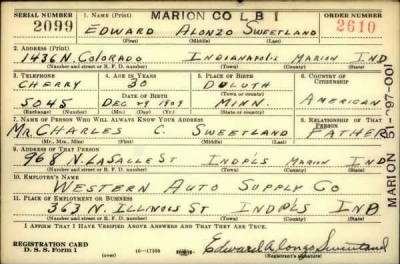 SERIAL NUMBER 1. NAME (Print) MARION CO L B 1 ORDER NUMBER
2099 EDWARD ALONZO SWEETLAND 2610
(First) (Middle) (Last)
2. ADDRESS (Print)
1436 N. COLORADO INDIANAPOLIS MARION IND
(Number and street or R. F. D. number) (Town) (County) (State)
3. TELEPHONE 4. AGE IN YEARS 5. PLACE OF BIRTH 6. COUNTRY OF CITIZENSHIP
CHERRY 30 DULUTH
DATE OF BIRTH (Town or county)
5045 DEC 29 1909 MINN. AMERICAN
(Exchange) (Number) (Mo.) (Day) (Yr.) (State or country)
7. NAME OF PERSON WHO WILL ALWAYS KNOW YOUR ADDRESS 8. RELATIONSHIP OF THAT PERSON
MR. CHARLES C. SWEETLAND FATHER
(Mr., Mrs., Miss) (First) (Middle) (Last)
9. ADDRESS OF THAT PERSON
968 N. LASALLE ST INDPLS MARION IND
(Number and street or R. F. D. number) (Town) (County) (State)
10. EMPLOYER'S NAME
WESTERN AUTO SUPPLY CO
11. PLACE OF EMPLOYMENT OR BUSINESS
363 N. ILLINOIS ST INDPLS IND
(Number and street or R. F. D. number) (Town) (County) (State)
I AFFIRM THAT I HAVE VERIFIED ABOVE ANSWERS AND THAT THEY ARE TRUE.
REGISTRATION CARD
D. S. S. Form 1 16-17105 Edward Alonzo Sweetland
(Registrant's signature)
MARION 51-297-001